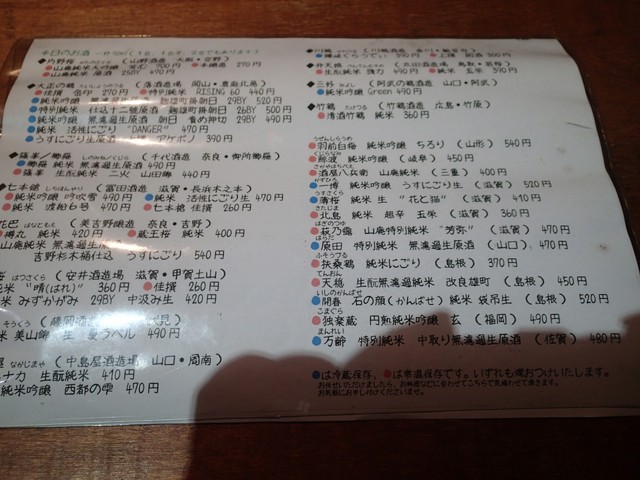 本日のお酒
◆片野桜 (山野酒造 大阪・交野)
700円 本醸造 270円
山廃純米 原酒 25BY 470円
◆大正の鶴 (落酒造場 岡山・真庭北房)
佳撰 金印 270円 特別純米 RISING 60 440円
純米吟醸 無濾過生原酒 雄町 29BY 520円
特別純米 26BY 500円
純米吟醸 無濾過生原酒 朝日 29BY 490円
純米 活性にごり "DANGER" 470円
うすにごり生原酒 アケボノ 390円
◆篠峯/櫛羅 しのみね/くじら (千代酒造 奈良・御所櫛羅)
櫛羅 純米 無濾過生原酒 490円
篠峯 生酛純米 二火 山田錦 440円
七本鎗 しちほんやり (冨田酒造 滋賀・長浜木之本)
純米吟醸 吟吹雪 490円 純米 活性にごり生 470円
純米 渡船6号 470円 七本鎗 佳撰 260円
花巴 はなともえ (美吉野醸造 奈良・吉野)
樽丸 純米 420円 蔵王桜 純米 400円
山廃純米 無濾過生原酒
吉野杉木桶仕込 うすにごり 540円
はつざくら (安井酒造場 滋賀・甲賀土山)
純米 "晴(はれ)" 360円 佳撰 260円
純米 みずかがみ 29BY 中汲み生 420円
そうくう (藤岡酒造
米 美山錦 生 夏ラベル 490円
なかじまや (中島屋酒造場 山口・周南)
カナカ 生酛純米 410円
純米吟醸 西都の雫 470円
◆川鶴 (川鶴酒造 香川・観音寺)
讃岐くらうでぃ 390円 上撰 300円
◆弁天娘 (太田酒造場 鳥取・若桜)
生酛純米 強力 490円 純米 玉栄 390円
◆三好 みよし (阿武の鶴酒造 山口・阿武)
純米吟醸 Green 490円
◆竹鶴 たけつる (竹鶴酒造 広島・竹原)
清酒竹鶴 純米 360円
羽前白梅 純米吟醸 ちろり (山形) 540円
純米にごり (岐阜) 450円
酒屋八兵衛 山廃純米 (三重) 400円
一博 純米吟醸 うすにごり生 (滋賀) 520円
薄桜 純米 生 "花と猫" (滋賀) 410円
北島 純米 超辛 玉栄 (滋賀) 360円
萩乃露 山廃特別純米 "芳弥" (滋賀) 470円
原田 特別純米 無濾過生原酒 (山口) 470円
扶桑鶴 純米にごり (島根) 370円
天穏 生酛無濾過純米 改良雄町 (島根) 450円
開春 石の顔(かんばせ) 純米 袋吊生 (島根) 520円
独楽蔵 円熟純米吟醸 玄 (福岡) 490円
万齢 特別純米 中取り無濾過生原酒 (佐賀) 480円
●は冷蔵保存、●は常温保存です。いずれも燗おつけいたします。
お任せいただけましたら、お料理などに合わせてこちらで見繕わせて頂きます。
お気軽にお申し付けくださいませ。